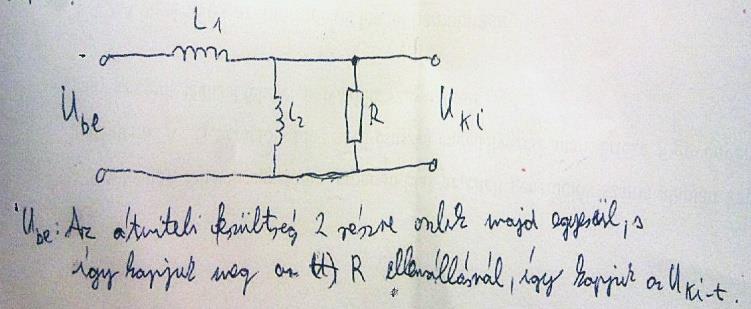 L1
Ube
L2
R
Uki
Ube: Az átviteli feszültség 2 részre oszlik majd egyesül, s
így kapjuk meg az R ellenállásnál, így kapjuk az Uki-t.